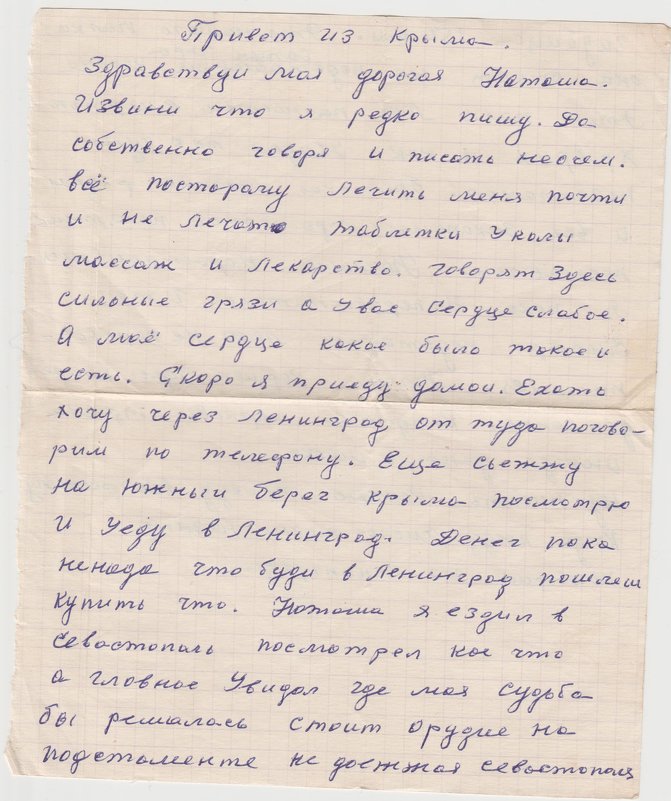 Привет из Крыма.
Здравствуй моя дорогая Наташа.
Извини что я редко пишу. Да
собственно говоря и писать неочем.
всё постарому лечить меня почти
и не лечат таблетки уколы
массаж и лекарство. говорят здесь
сильные грязи а у вас сердце слабое.
А моё сердце какое было такое и
есть. Скоро я приеду домой. Ехать
хочу через Ленинград от туда погово-
рим по телефону. Еще сьежжу
на южный берег Крыма посмотрю
и уеду в Ленинград. Денег пока
ненада что буди в Ленинград пошлеш
купить что. Наташа я ездил в
Севастополь посмотрел кое что
а главное увидал где моя судьба
бы решалась стоит орудие на
подстаменте не доежжая Севастополя